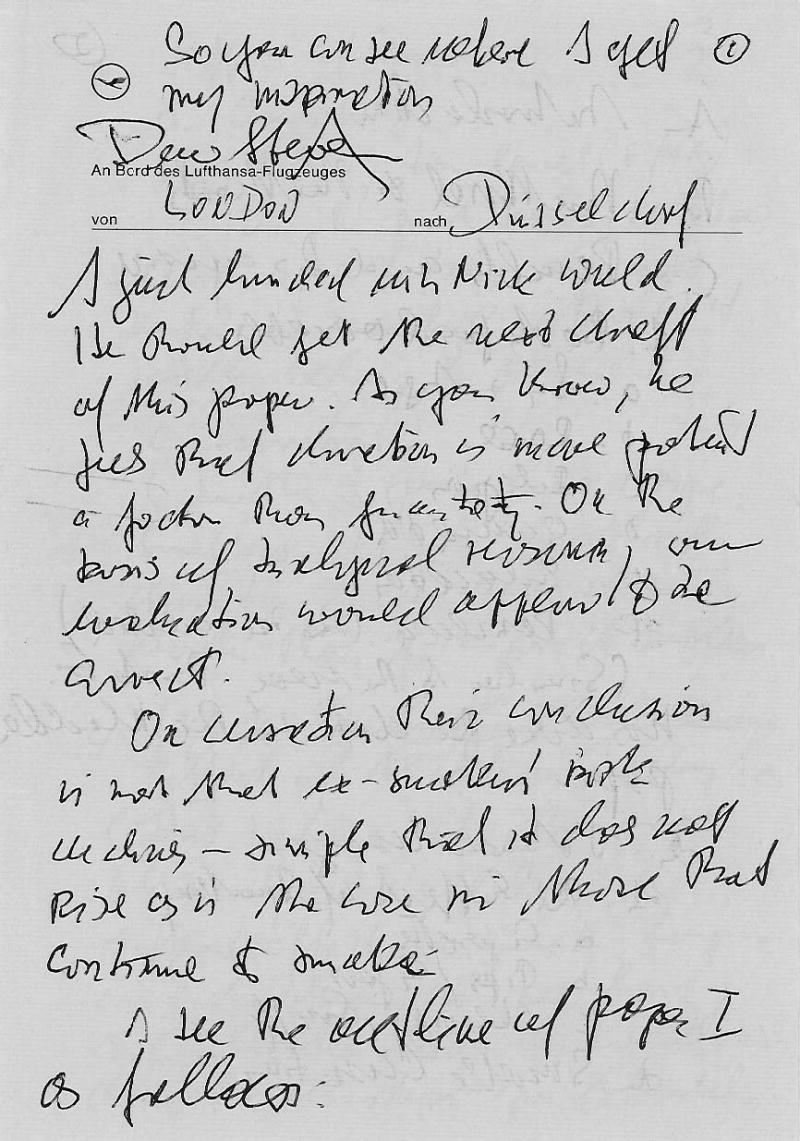 So you can see where I get ①
my inspiration
Dear Steve
An Bord des Lufthansa-Flugzeuges
von LONDON nach Düsseldorf
I just lunched with Nick Wald.
He should get the next draft
of this paper. As you know, he
feels that duration is more potent
a factor than quantity. On the
basis of biological reasoning, our
evaluation would appear to be
correct.
On cessation their conclusion
is not that ex-smokers' risk
declines — simple that it does not
Rise as is the case in those that
continue to smoke.
I see the outline of paper I
as follows: